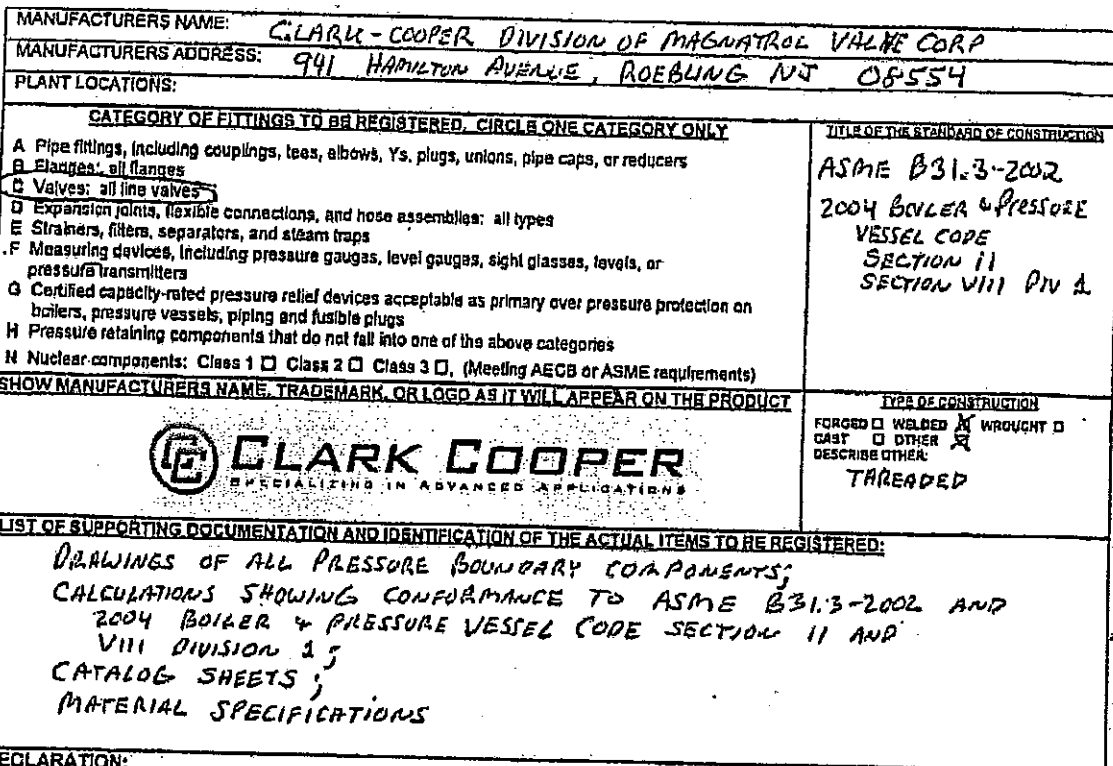 MANUFACTURERS NAME: CLARK-COOPER DIVISION OF MAGNATROL VALVE CORP
MANUFACTURERS ADDRESS: 941 HAMILTON AVENUE, ROEBLING NJ 08554
PLANT LOCATIONS:
CATEGORY OF FITTINGS TO BE REGISTERED. CIRCLE ONE CATEGORY ONLY
A Pipe fittings, including couplings, tees, elbows, Ys, plugs, unions, pipe caps, or reducers
B Flanges: all flanges
C Valves: all line valves
D Expansion joints, flexible connections, and hose assemblies: all types
E Strainers, filters, separators, and steam traps
F Measuring devices, including pressure gauges, level gauges, sight glasses, levels, or
pressure transmitters
G Certified capacity-rated pressure relief devices acceptable as primary over pressure protection on
boilers, pressure vessels, piping and fusible plugs
H Pressure retaining components that do not fall into one of the above categories
N Nuclear components: Class 1 ☐ Class 2 ☐ Class 3 ☐, (Meeting AECB or ASME requirements)
TITLE OF THE STANDARD OF CONSTRUCTION
ASME B31.3-2002
2004 BOILER & PRESSURE
VESSEL CODE
SECTION II
SECTION VIII DIV 1
SHOW MANUFACTURERS NAME, TRADEMARK, OR LOGO AS IT WILL APPEAR ON THE PRODUCT
CLARK COOPER
SPECIALIZING IN ADVANCED APPLICATIONS
TYPE OF CONSTRUCTION
FORGED ☐ WELDED ☒ WROUGHT ☐
CAST ☐ OTHER ☒
DESCRIBE OTHER:
THREADED
LIST OF SUPPORTING DOCUMENTATION AND IDENTIFICATION OF THE ACTUAL ITEMS TO BE REGISTERED:
DRAWINGS OF ALL PRESSURE BOUNDARY COMPONENTS;
CALCULATIONS SHOWING CONFORMANCE TO ASME B31.3-2002 AND
2004 BOILER & PRESSURE VESSEL CODE SECTION II AND
VIII DIVISION 1;
CATALOG SHEETS;
MATERIAL SPECIFICATIONS
ECLARATION: